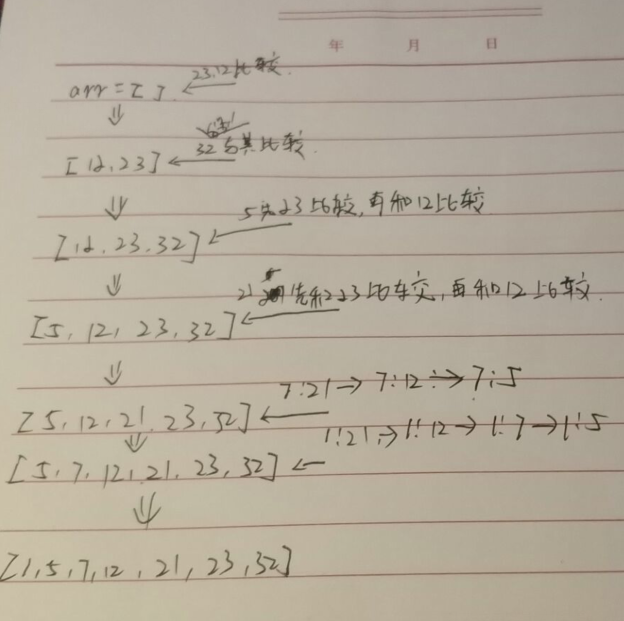 年 月 日
23.12比较.
arr = [ ]
32与其比较.
[12,23]
5先23比较,再和12比较
[12,23,32]
21 先和23比较,再和12比较.
[5,12,23,32]
7:21→7:12→7:5
[5,12,21,23,32]
1:21→1:12→1:7→1:5
[5,7,12,21,23,32]
[1,5,7,12,21,23,32]